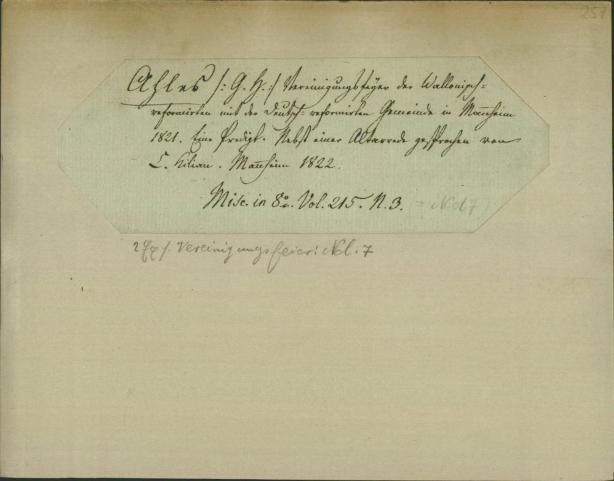 257
Ahles /: G. H.:/ Vereinigungsfeyer der Wallonisch-
reformirten mit der deutsch-reformirten Gemeinde in Mannheim
1821. Eine Predigt. Nebst einer Altarrede gesprochen von
C. Kilian. Mannheim 1822.
Misc. in 8o. Vol. 215. N. 3.
Vereinigungsfeier: Nbl. 7